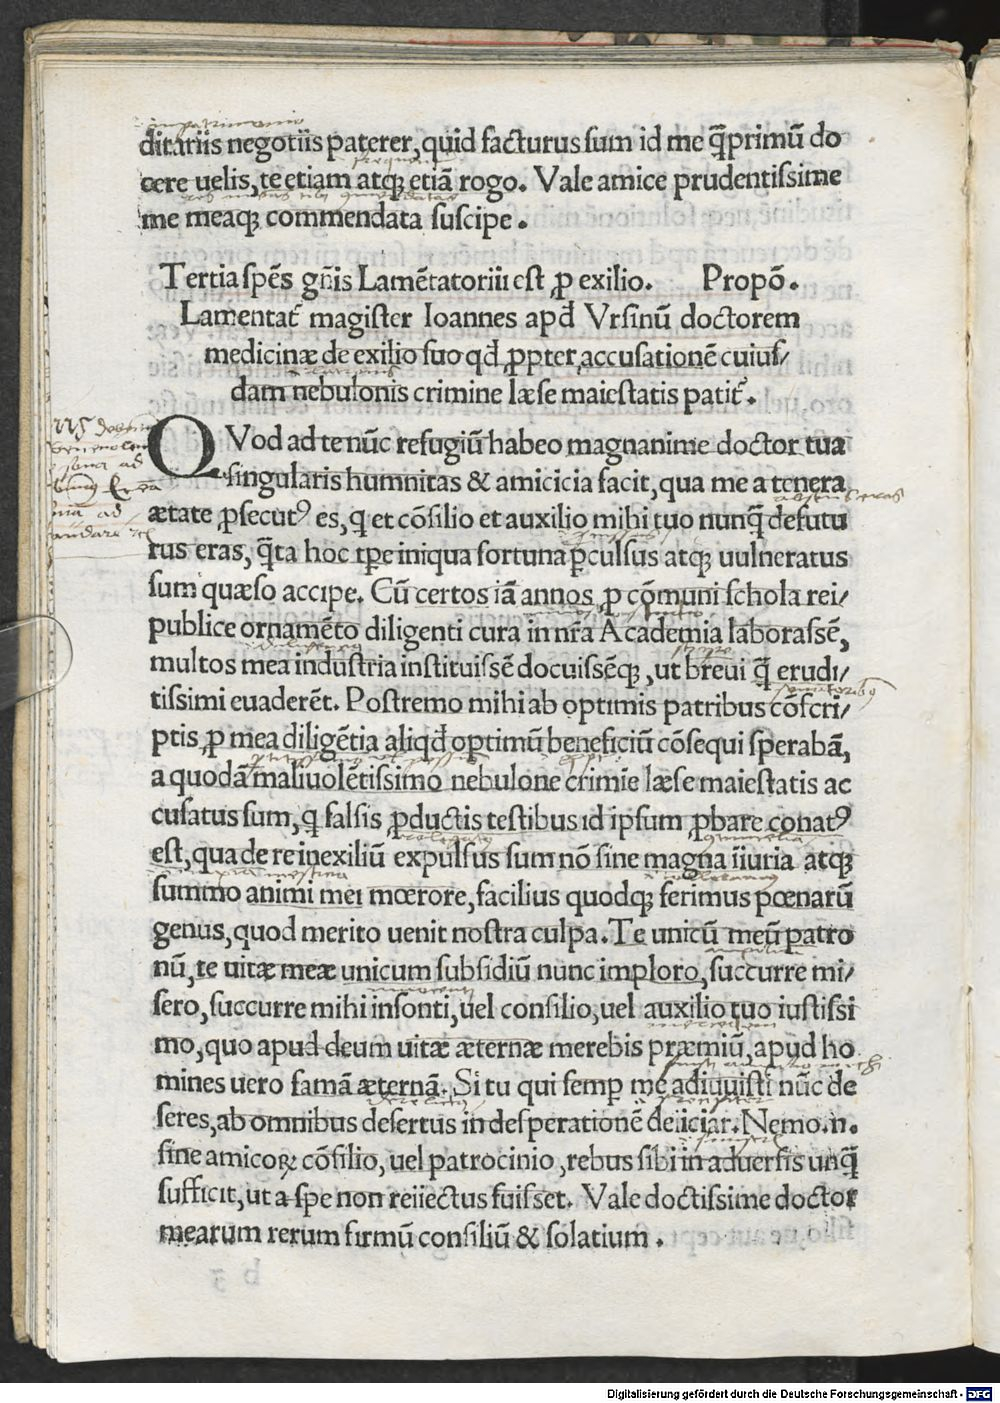 ditariis negotiis paterer, quid facturus sum id me q̃primũ do
cere uelis, te etiam atqꝫ etiã rogo. Vale amice prudentissime
me meaqꝫ commendata suscipe.
Tertia spẽs gñis Lamẽtatorii est ꝓ exilio. Propõ.
Lamentat᷑ magister Ioannes apđ Vrsinũ doctorem
medicinæ de exilio suo qđ ꝓpter accusationẽ cuius/
dam nebulonis crimine læse maiestatis patit᷑.
QVod ad te nũc refugiũ habeo magnanime doctor tua
singularis humnitas & amicicia facit, qua me a tenera
ætate ꝓsecutꝰ es, ꝙ et cõsilio et auxilio mihi tuo nunq̃ defutu
rus eras, q̃ta hoc tp̃e iniqua fortuna ꝑculsus atqꝫ uulneratus
sum quæso accipe. Cũ certos iã annos ꝓ cõmuni schola rei/
publice ornamẽto diligenti cura in nr̃a Academia laborassẽ,
multos mea industria instituissẽ docuissẽqꝫ, ut breui q̃ erudi/
tissimi euaderẽt. Postremo mihi ab optimis patribus cõscri/
ptis, ꝓ mea diligẽtia aliqđ optimũ beneficiũ cõsequi sperabã,
a quodã maliuolẽtissimo nebulone crimĩe læse maiestatis ac
cusatus sum, ꝙ falsis ꝓductis testibus id ipsum ꝓbare conatꝰ
est, qua de re in exiliũ expulsus sum nõ sine magna iĩuria atqꝫ
summo animi mei mœrore, facilius quodqꝫ ferimus pœnarũ
genus, quod merito uenit nostra culpa. Te unicũ meũ patro
nũ, te uitæ meæ unicum subsidiũ nunc imploro, succurre mi/
sero, succurre mihi insonti, uel consilio, uel auxilio tuo iustissi
mo, quo apud deum uitæ æternæ merebis præmiũ, apud ho
mines uero famã æternã. Si tu qui semꝑ me adiuuisti nũc de
seres, ab omnibus desertus in desperationẽ deiiciar. Nemo .n.
sine amicoꝝ cõsilio, uel patrocinio, rebus sibi in aduersis unq̃
sufficit, ut a spe non reiiectus fuisset. Vale doctissime doctor
mearum rerum firmũ consiliũ & solatium.
Digitalisierung gefördert durch die Deutsche Forschungsgemeinschaft - DFG